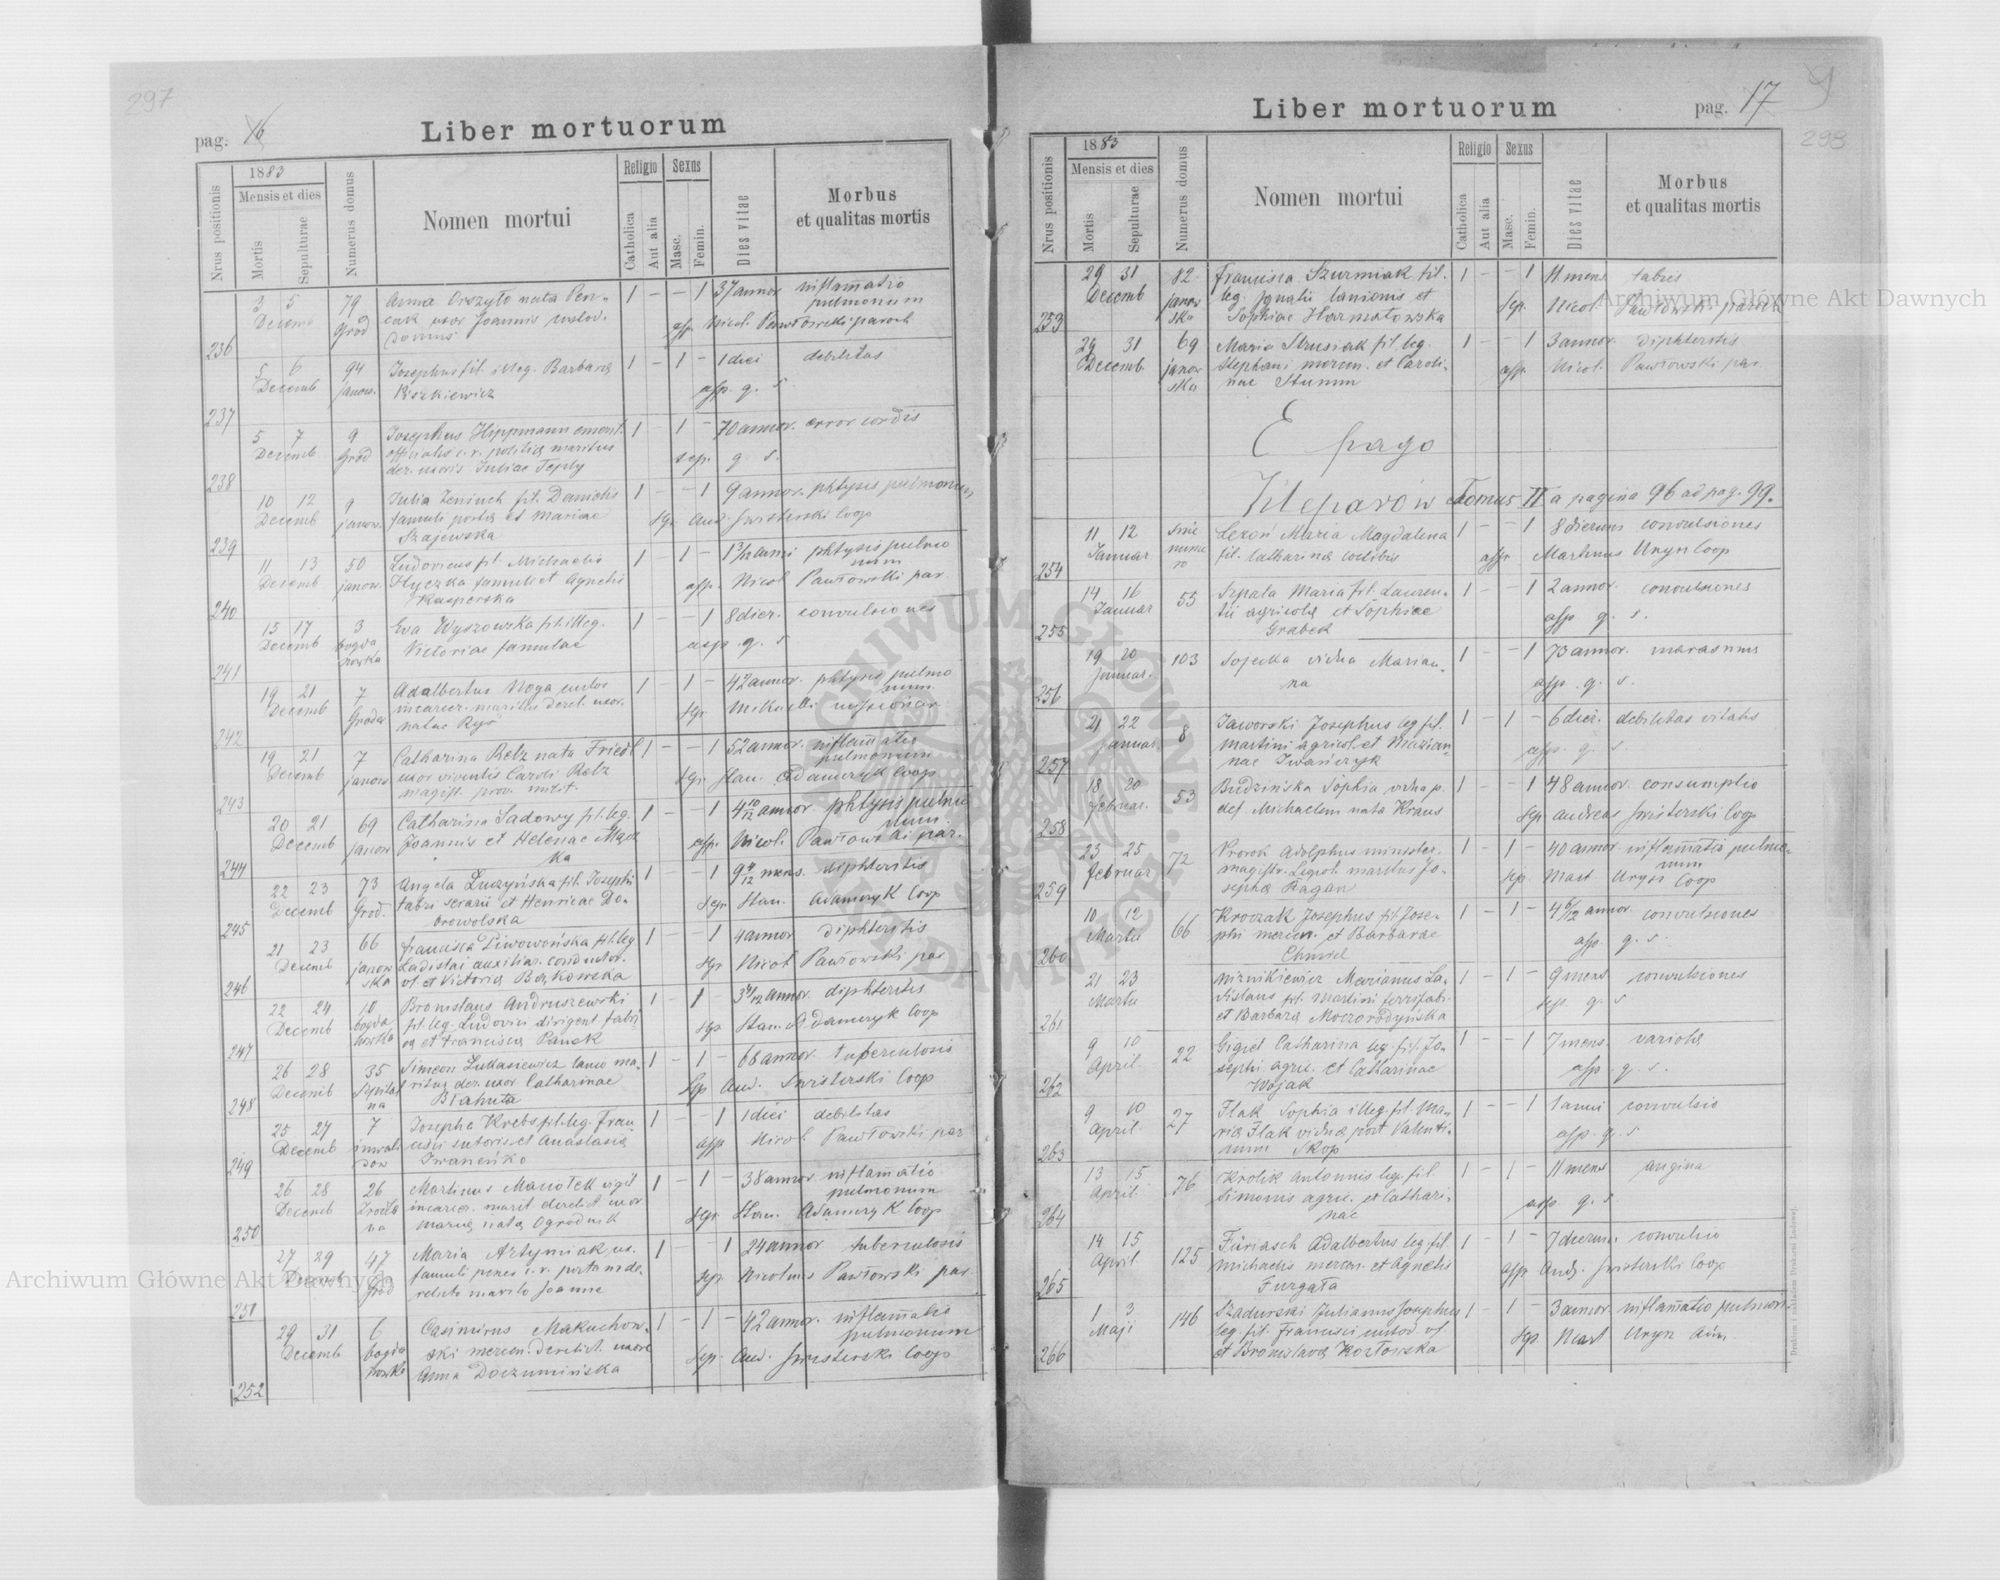 297
pag. 16
Liber mortuorum
Nrus positionis
1883
Mensis et dies
Mortis
Sepulturae
Numerus domus
Nomen mortui
Religio
Catholica
Aut alia
Sexus
Masc.
Femin.
Dies vitae
Morbus
et qualitas mortis
236 3 5 79 Anna nata 1 – – 1 37 annor inflam̄atio
Decemb Gród uxor Joannis pulmonum
asp. Nicol. Pawłowski paroch
237 5 6 94 Josephus fil. illeg. Barbarą 1 – 1 – 1 diei debilitas
Decemb janow. asp. q. s.
238 5 7 9 Josephus Hippmann emerit. 1 – 1 – 70 annor. error cordis
Decemb Gród officialis c. r. politią maritus
der. uxoris Juliae Teply sep. q. s.
239 10 12 9 Julia fil. Danielis 1 – – 1 9 annor. phtysis pulmonum
Decemb janow. famuli et Mariae
Szajewska sep. And. Swisterski Coop
240 11 13 50 Ludovicus fil. Michaelis 1 – 1 – 1 3/12 anni phtysis pulmo
num
Decemb janow. Hyczka famuli et Agnetis
Kasperska asp. Nicol Pawłowski par.
241 15 17 3 Eva Wyszowska fil. illeg. 1 – – 1 8 dier. convulsiones
Decemb bogda
nowka Victoriae famulae asp. q. s
242 19 21 7 Adalbertus Noga custos 1 – 1 – 42 annor. phtysis pulmo
num
Decemb Gródec incarcer. maritus derel. uxor.
natae Ryś
243 19 21 7 Catharina Retz nata Friedl 1 – – 1 52 annor. inflam̄atio
pulmonum
Decemb janow uxor viventis Caroli Retz
magist. prov. milit. sep. Stan. Adamczyk Coop
244 20 21 69 Catharina Sadowy fil. leg. 1 – – 1 4 10/12 annor phtysis pulmo
num.
Decemb janow Joannis et Helenae
ka asp. Nicol. Pawłowski par.
245 22 23 73 Angela Łuczyńska fil. Josephi 1 – – 1 9 4/12 mens. diphteritis
Decemb Grod. fabri serarii et Henricae Do-
browolska sep. Stan. Adamczyk Coop
246 21 23 66 Francisca Piwowońska fil. leg 1 – – 1 4 annor diphteritis
Decemb janow
ska Ladislai auxiliar. conductor.
et Victorią Bąkowska sep Nicol Pawłowski par
247 22 24 10 Bronislaus Andruszewski 1 – 1 – 3 4/12 annor. diphteritis
Decemb bogda
nowka fil. leg. Ludovici dirigent. fabri
et Francisca Panek sep Stan. Adamczyk Coop
248 26 28 35 Simeon Łukasiewicz lanio ma- 1 – 1 – 68 annor. tuberculosis
Decemb Szpital
na ritus der. uxor. Catharinae
Błahuta sep And. Swisterski Coop
249 25 27 7 Josepha Krebs fil. leg. Fran 1 – – 1 1 diei debilitas
Decemb inwali
dow cisci sutoris et Anastasią
Iwaneńko asp Nicol Pawłowski par
250 26 28 26 Martinus Manotek vigil 1 – 1 – 38 annor inflamatio
pulmonum
Decemb Źródla
na incarcer. marit. derelict. uxor
Marią nata Ogrodnik sep. Stan. Adamczyk Coop
251 27 29 47 Maria Artymiak ux. 1 – – 1 24 annor tuberculosis
Decemb Gród famuli penes c. r. porta mde.
relicto marito Joanne sep. Nicolaus Pawłowski par
252 29 31 6 Casimirus Makuchow- 1 – 1 – 42 annor. inflam̄atio
pulmonum
Decemb bogda
nowka ski mercen. derelict. uxore
Anna Doczumińska sep. And. Swisterski Coop
pag. 17
9
298
Liber mortuorum
Nrus positionis
1883
Mensis et dies
Mortis
Sepulturae
Numerus domus
Nomen mortui
Religio
Catholica
Aut alia
Sexus
Masc.
Femin.
Dies vitae
Morbus
et qualitas mortis
253 29 31 82 Francisca Szurmiak fil. 1 – – 1 11 mens tabes
Decemb janow
ska leg. Ignatii lanionis et
Sophiae Harmatowska sep. Nicol. Pawłowski paroch
29 31 69 Maria Strusiak fil. leg. 1 – – 1 3 annor. diphteritis
Decemb. janow
ska Stephani mercen. et Caroli-
nae Stumm asp. Nicol. Pawłowski par.
E pago
Kleparów Tomus II a pagina 96 ad pag. 99.
254 11 12 sine
nume
ro Lezoń Maria Magdalena 1 – – 1 8 dierum convulsiones
Januar fil. Catharina coelibis asp. Martinus Uryn Coop
255 14 16 55 Szpala Maria fil. Lauren- 1 – – 1 2 annor. convulsiones
Januar tii agricolą et Sophiae
Grabek asp q. s.
256 19 20 103 Sojecka vidua Marian- 1 – – 1 73 annor. marasmus
Januar. na asp. q. s.
257 21 22 8 Jaworski Josephus leg fil. 1 – 1 – 6 dier. debilitas vitalis
Januar. Martini agricol. et Marian-
nae Iwańczyk asp. q. s.
258 18 20 53 Budzińska Sophia vidua p. 1 – – 1 48 annor. consumptio
Februar. def. Michaelem nata Kraus sep Andreas Swisterski Coop
259 23 25 72 Wrorok Adolphus minister. 1 – 1 – 40 annor inflam̄atio pulmo-
num
Februar magistr. Leopol. maritus Jo-
sepha Ragan sep. Mart Uryn Coop
260 10 12 66 Kroczak Josephus fil. Jose- 1 – 1 – 4 6/12 annor. convulsiones
Martii phi mercen. et Barbarae
Chmiel asp. q. s.
261 21 23 Niznikiewicz Marianus La- 1 – 1 – 9 mens convulsiones
Martii dislaus fil. Martini ferrifabri
et Barbarą Moczorodyńska sep. q. s.
262 9 10 22 Gigiel Catharina leg. fil. Jo- 1 – – 1 7 mens. variola
April sephi agric. et Catharinae
Wojak asp. q. s.
263 9 10 27 Flak Sophia illeg. fil. Ma- 1 – – 1 1 anni convulsio
April rią Flak vidua post Valenti-
num Skop asp. q. s
264 13 15 76 Królik Antonius leg. fil 1 – 1 – 11 mens angina
April Simonis agric. et Cathari-
nae asp q. s.
265 14 15 125 Füriasch Adalbertus leg fil 1 – 1 – 7 dierum convulsio
April Michaelis mercen. et Agnetis
Furgała asp. And. Swisterski Coop
266 1 3 146 Szadurski Julianus Josephus 1 – 1 – 3 annor. inflam̄atio pulmon.
Maji leg. fil. Francisci custod. vf.
et Bronislavą Kozłowska sep. Mart Uryn Adm.
Archiwum Główne Akt Dawnych
Archiwum Główne Akt Dawnych
ARCHIWUM GŁÓWNE AKT DAWNYCH